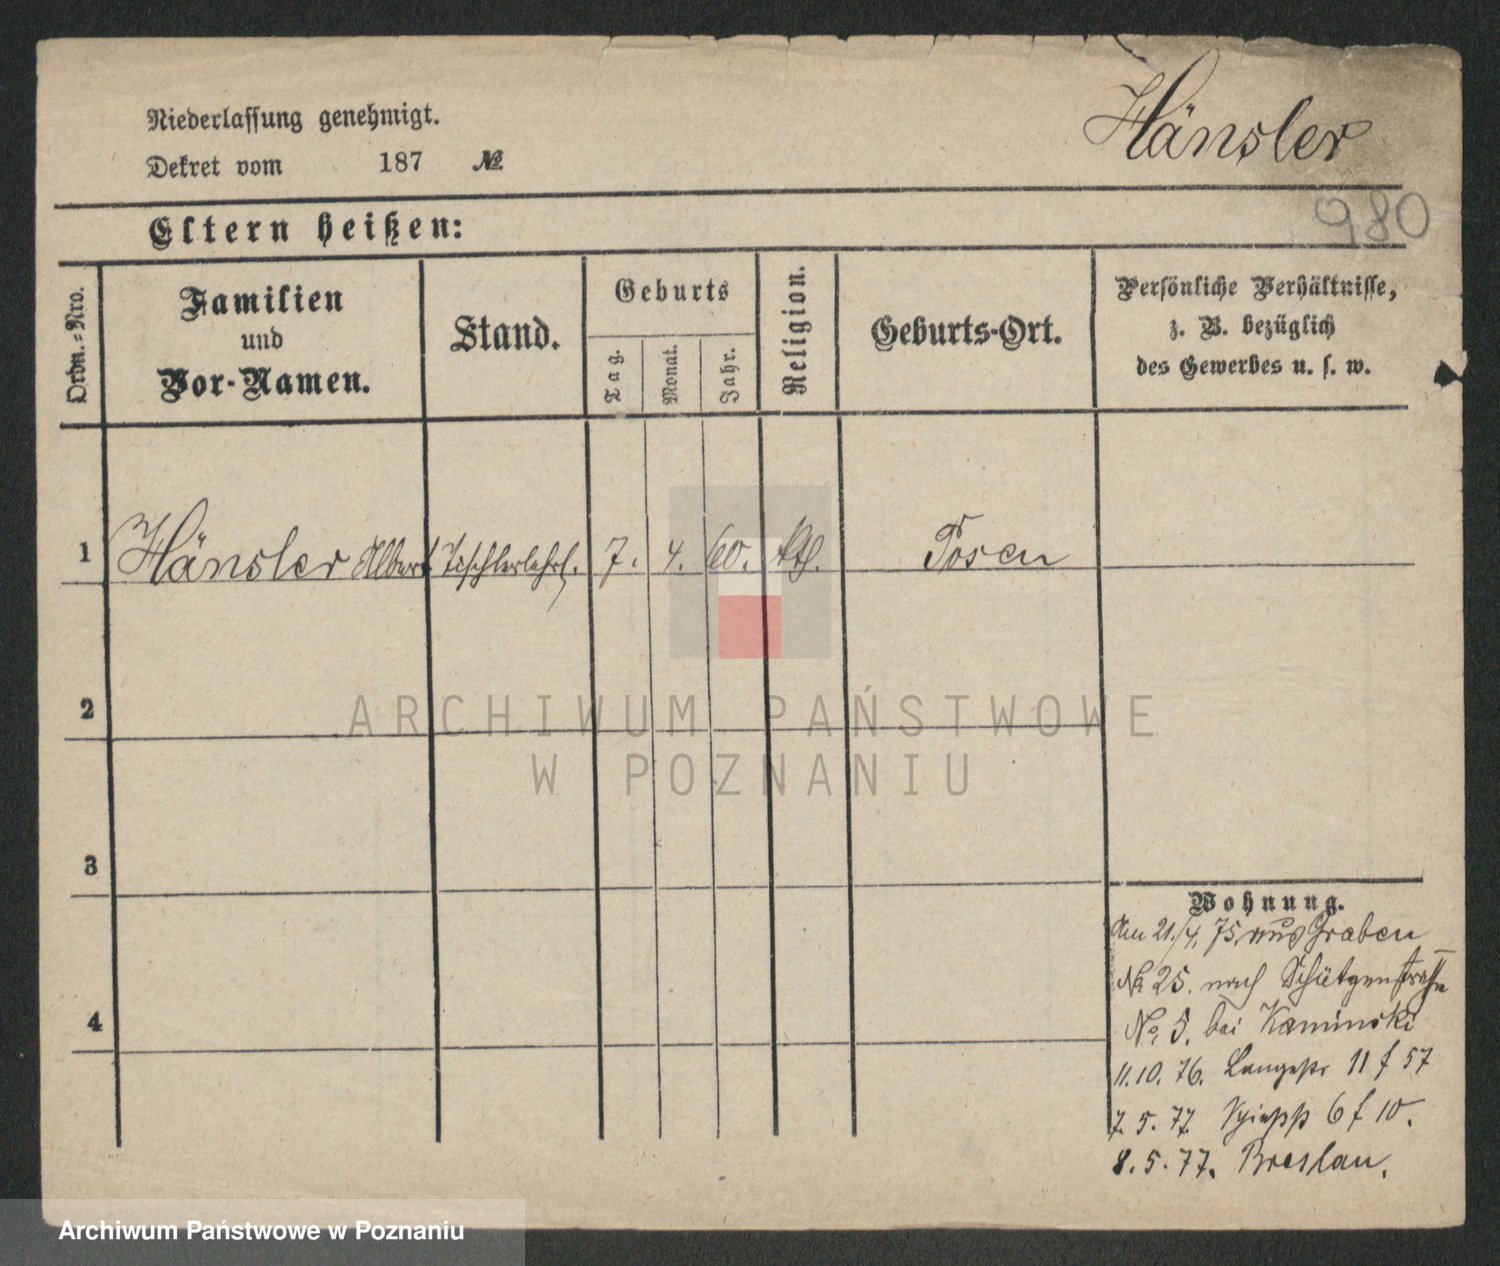 Niederlassung genehmigt.
Hänsler
Dekret vom 187 №
980
Eltern heißen:
Ordn.-Nro.
Familien
und
Vor-Namen.
Stand.
Geburts
Tag.
Monat.
Jahr.
Religion.
Geburts-Ort.
Persönliche Verhältnisse,
z. B. bezüglich
des Gewerbes u. s. w.
1 Hänsler Albert Tischlerlehrl. 7. 4. 60. kth. Posen
2
ARCHIWUM PAŃSTWOWE
W POZNANIU
3
Wohnung.
Am 21./4. 75 aus Graben
№ 25. nach Schützenstraße
No. 5. bei Kaminski
4
11.10. 76. Langestr 11 f 57
7. 5. 77 6 f 10.
8. 5. 77. Breslau.
Archiwum Państwowe w Poznaniu